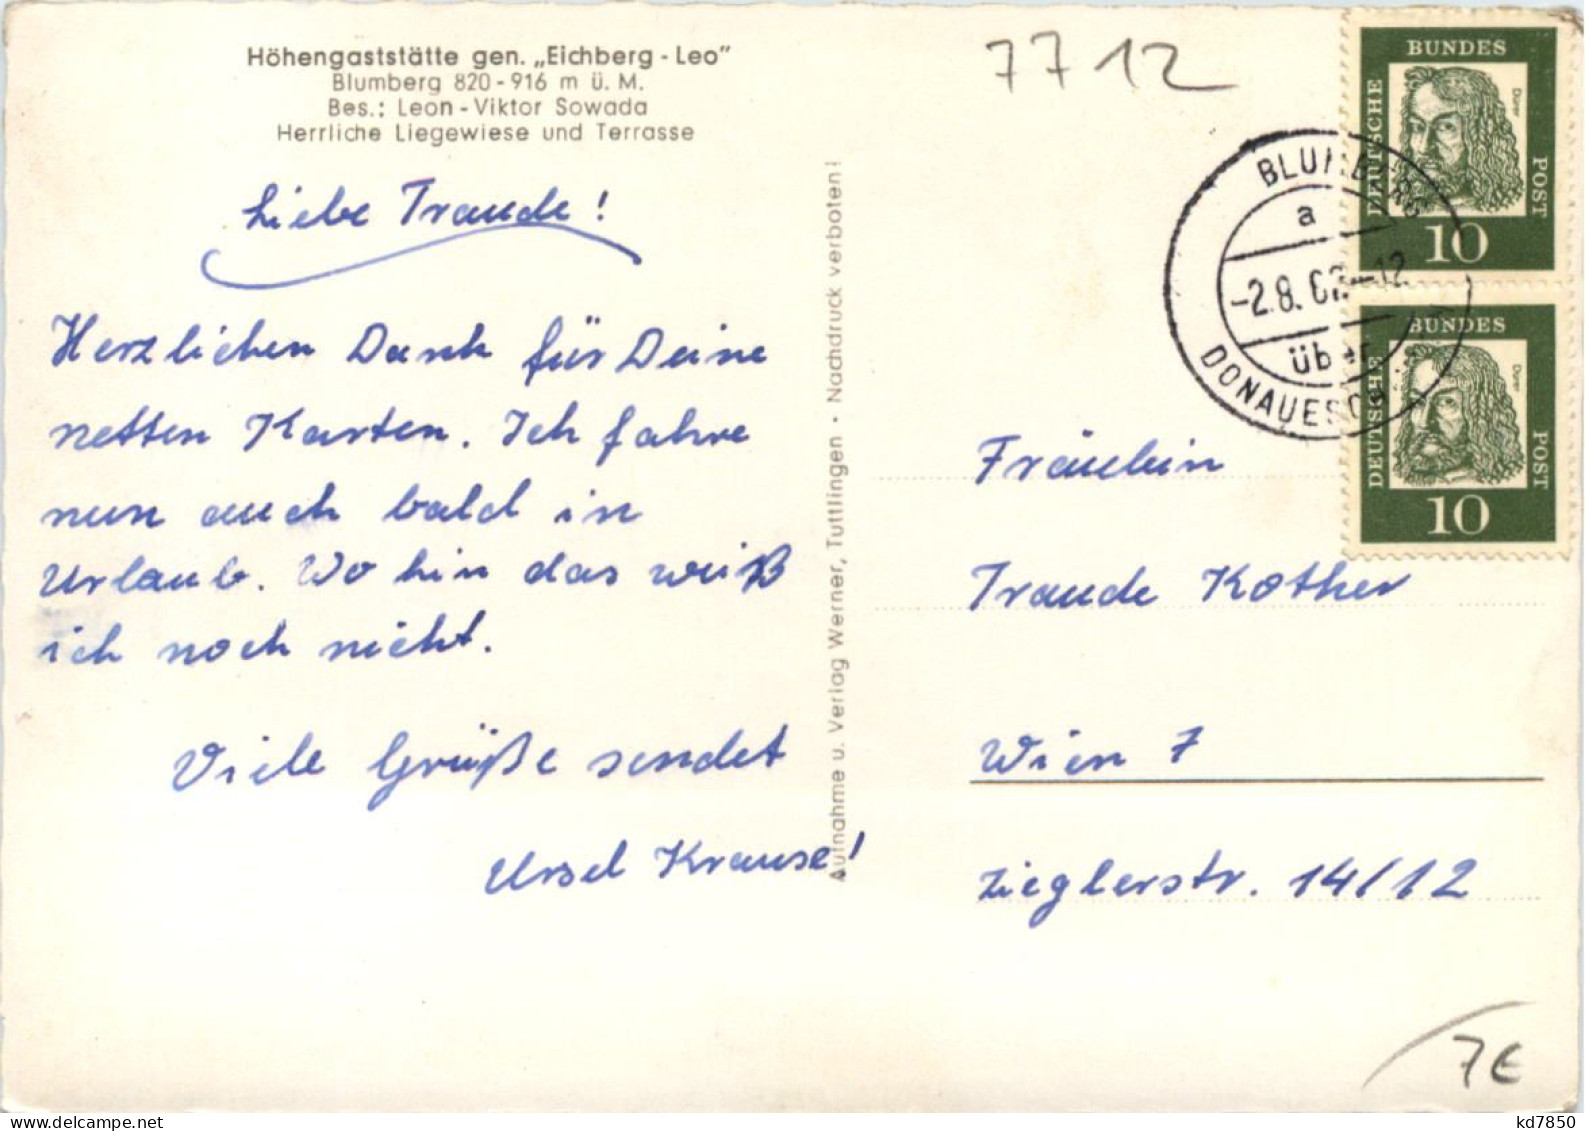 Höhengaststätte gen. „Eichberg - Leo"
Blumberg 820 - 916 m ü. M.
Bes.: Leon - Viktor Sowada
Herrliche Liegewiese und Terrasse
Liebe Traude!
Herzlichen Dank für Deine
netten Karten. Ich fahre
nun auch bald in
Urlaub. Wo hin das weiß
ich noch nicht.
Viele Grüße sendet
Ursel Krause!
Aufnahme u. Verlag Werner, Tuttlingen · Nachdruck verboten!
7712
BUNDES
DEUTSCHE
POST
Dürer
10
BUNDES
DEUTSCHE
POST
Dürer
10
BLUMBERG
a
-2.8.62-12
über
Fräulein
Traude Kother
Wien 7
Zieglerstr. 14/12
7€
delcampe.net
kd7850